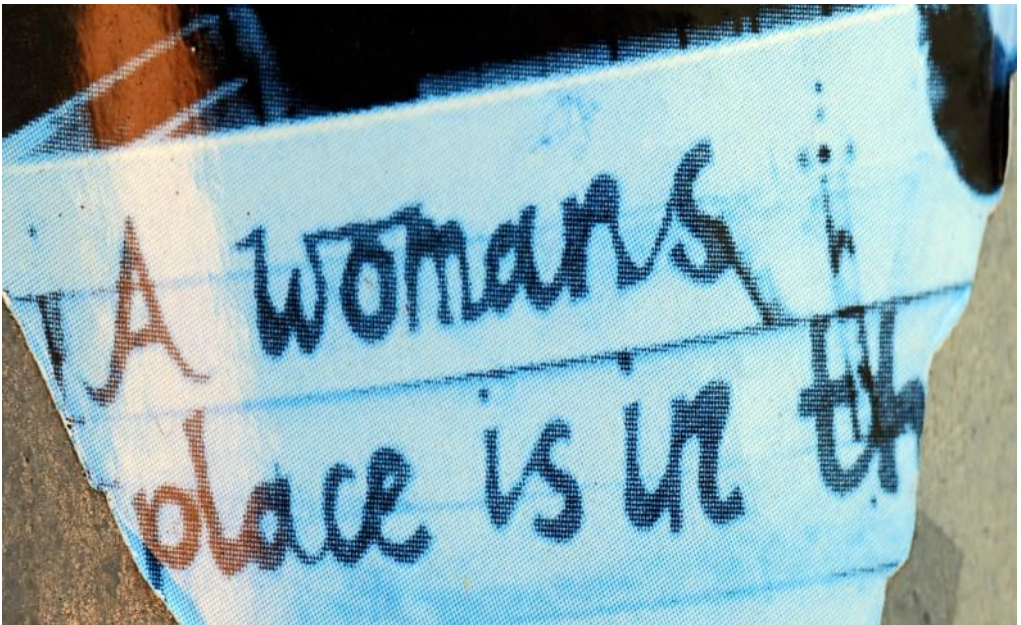 A womans
place is in th